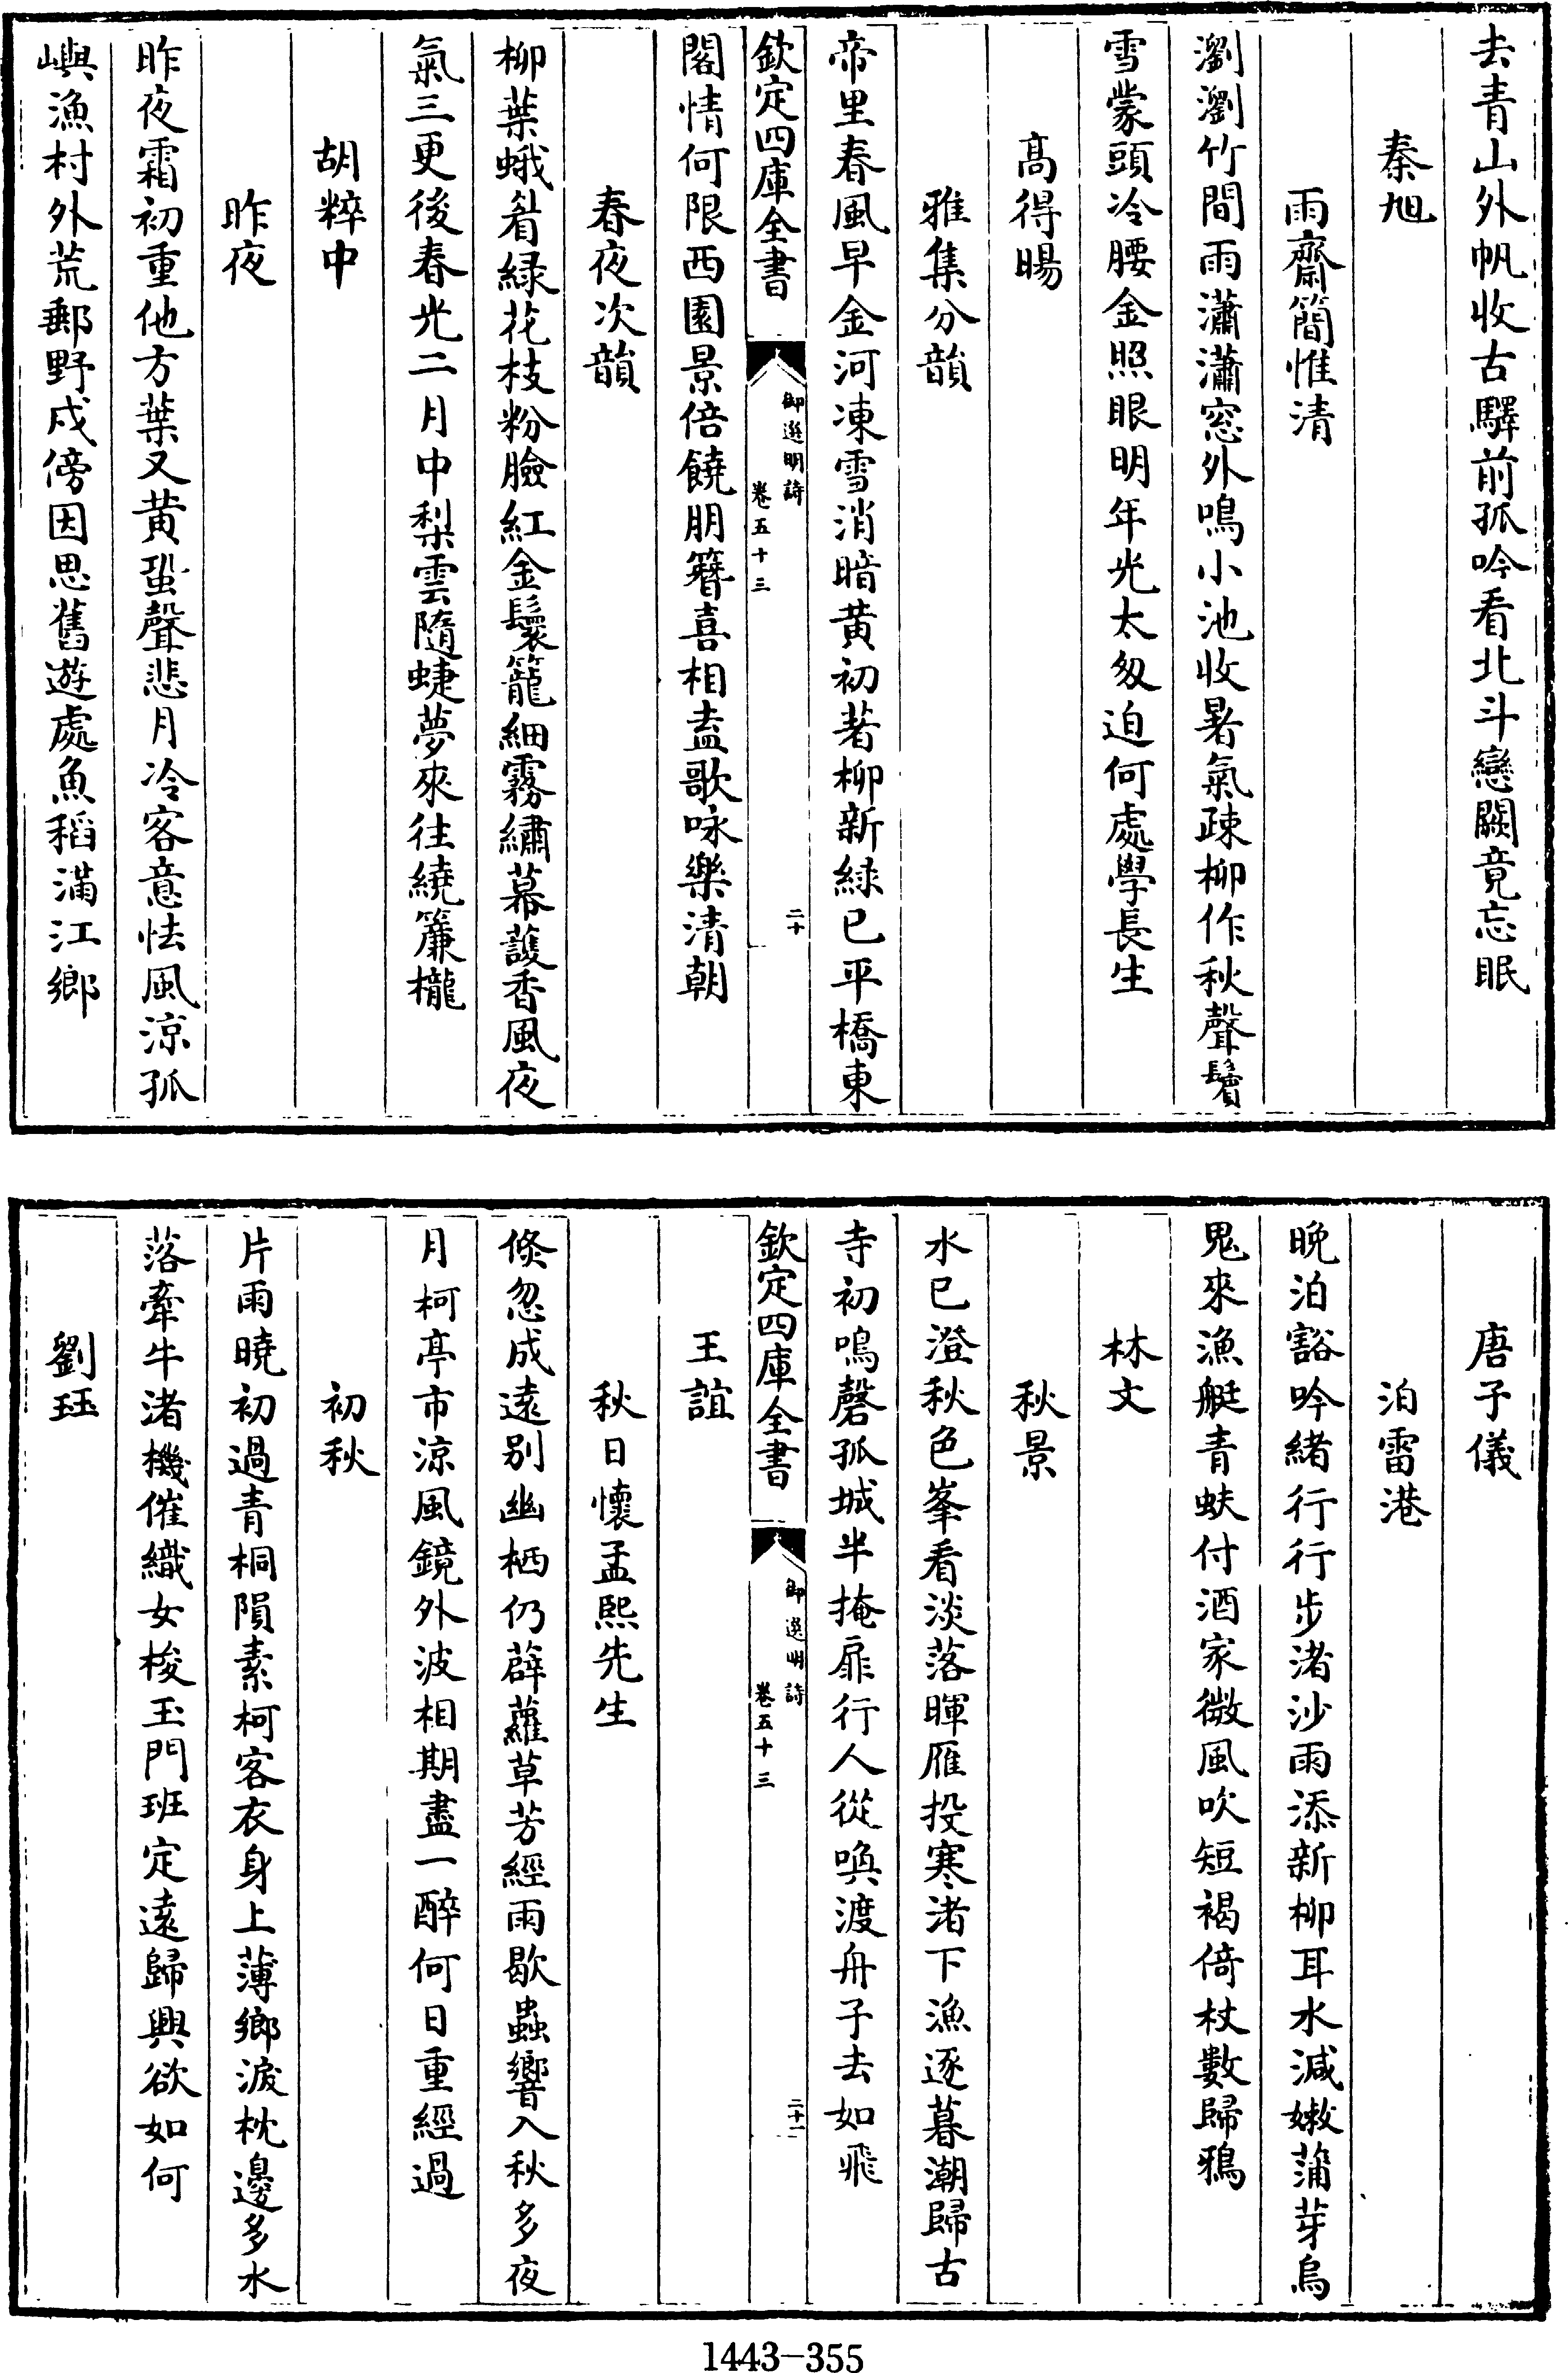 去青山外帆收古驛前孤吟看北斗戀闕竟忘眠
秦旭
雨齋簡惟清
瀏瀏竹間雨瀟瀟窓外鳴小池收暑氣疎柳作秋聲鬢
雪蒙頭冷腰金照眼明年光太匆迫何處學長生
高得暘
雅集分韻
帝里春風早金河凍雪消暗黄初著柳新緑已平橋東
欽定四庫全書
御選明詩
卷五十三
二十
閣情何限西園景倍饒朋簪喜相盍歌咏樂清朝
春夜次韻
柳葉蛾眉緑花枝粉臉紅金鬟籠細霧繡幕護香風夜
氣三更後春光二月中梨雲隨蜨夢來往繞簾櫳
胡粹中
昨夜
昨夜霜初重他方葉又黄蛩聲悲月冷客意怯風涼孤
嶼漁村外荒郵野戍傍因思舊遊處魚稻滿江鄉
唐子儀
泊雷港
晩泊豁吟緒行行步渚沙雨添新柳耳水減嫩蒲芽烏
鬼來漁艇青蚨付酒家微風吹短褐倚杖數歸鴉
林文
秋景
水已澄秋色峯看淡落暉雁投寒渚下漁逐暮潮歸古
寺初鳴磬孤城半掩扉行人從喚渡舟子去如飛
欽定四庫全書
御選明詩
卷五十三
二十一
王誼
秋日懷孟熙先生
倐忽成遠别幽栖仍薜蘿草芳經雨歇蟲響入秋多夜
月柯亭市涼風鏡外波相期盡一醉何日重經過
初秋
片雨曉初過青桐隕素柯客衣身上薄鄉淚枕邊多水
落牽牛渚機催織女梭玉門班定遠歸興欲如何
劉珏
1443-355